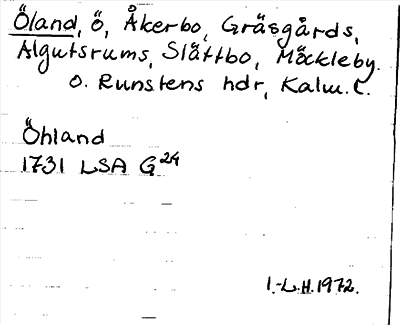 Öland, ö, Åkerbo, Gräsgårds,
Algutsrums, Slättbo, Möckleby.
o. Runstens hdr, Kalm. l.
Öhland
1731 LSA G24
I.-L.H. 1972.